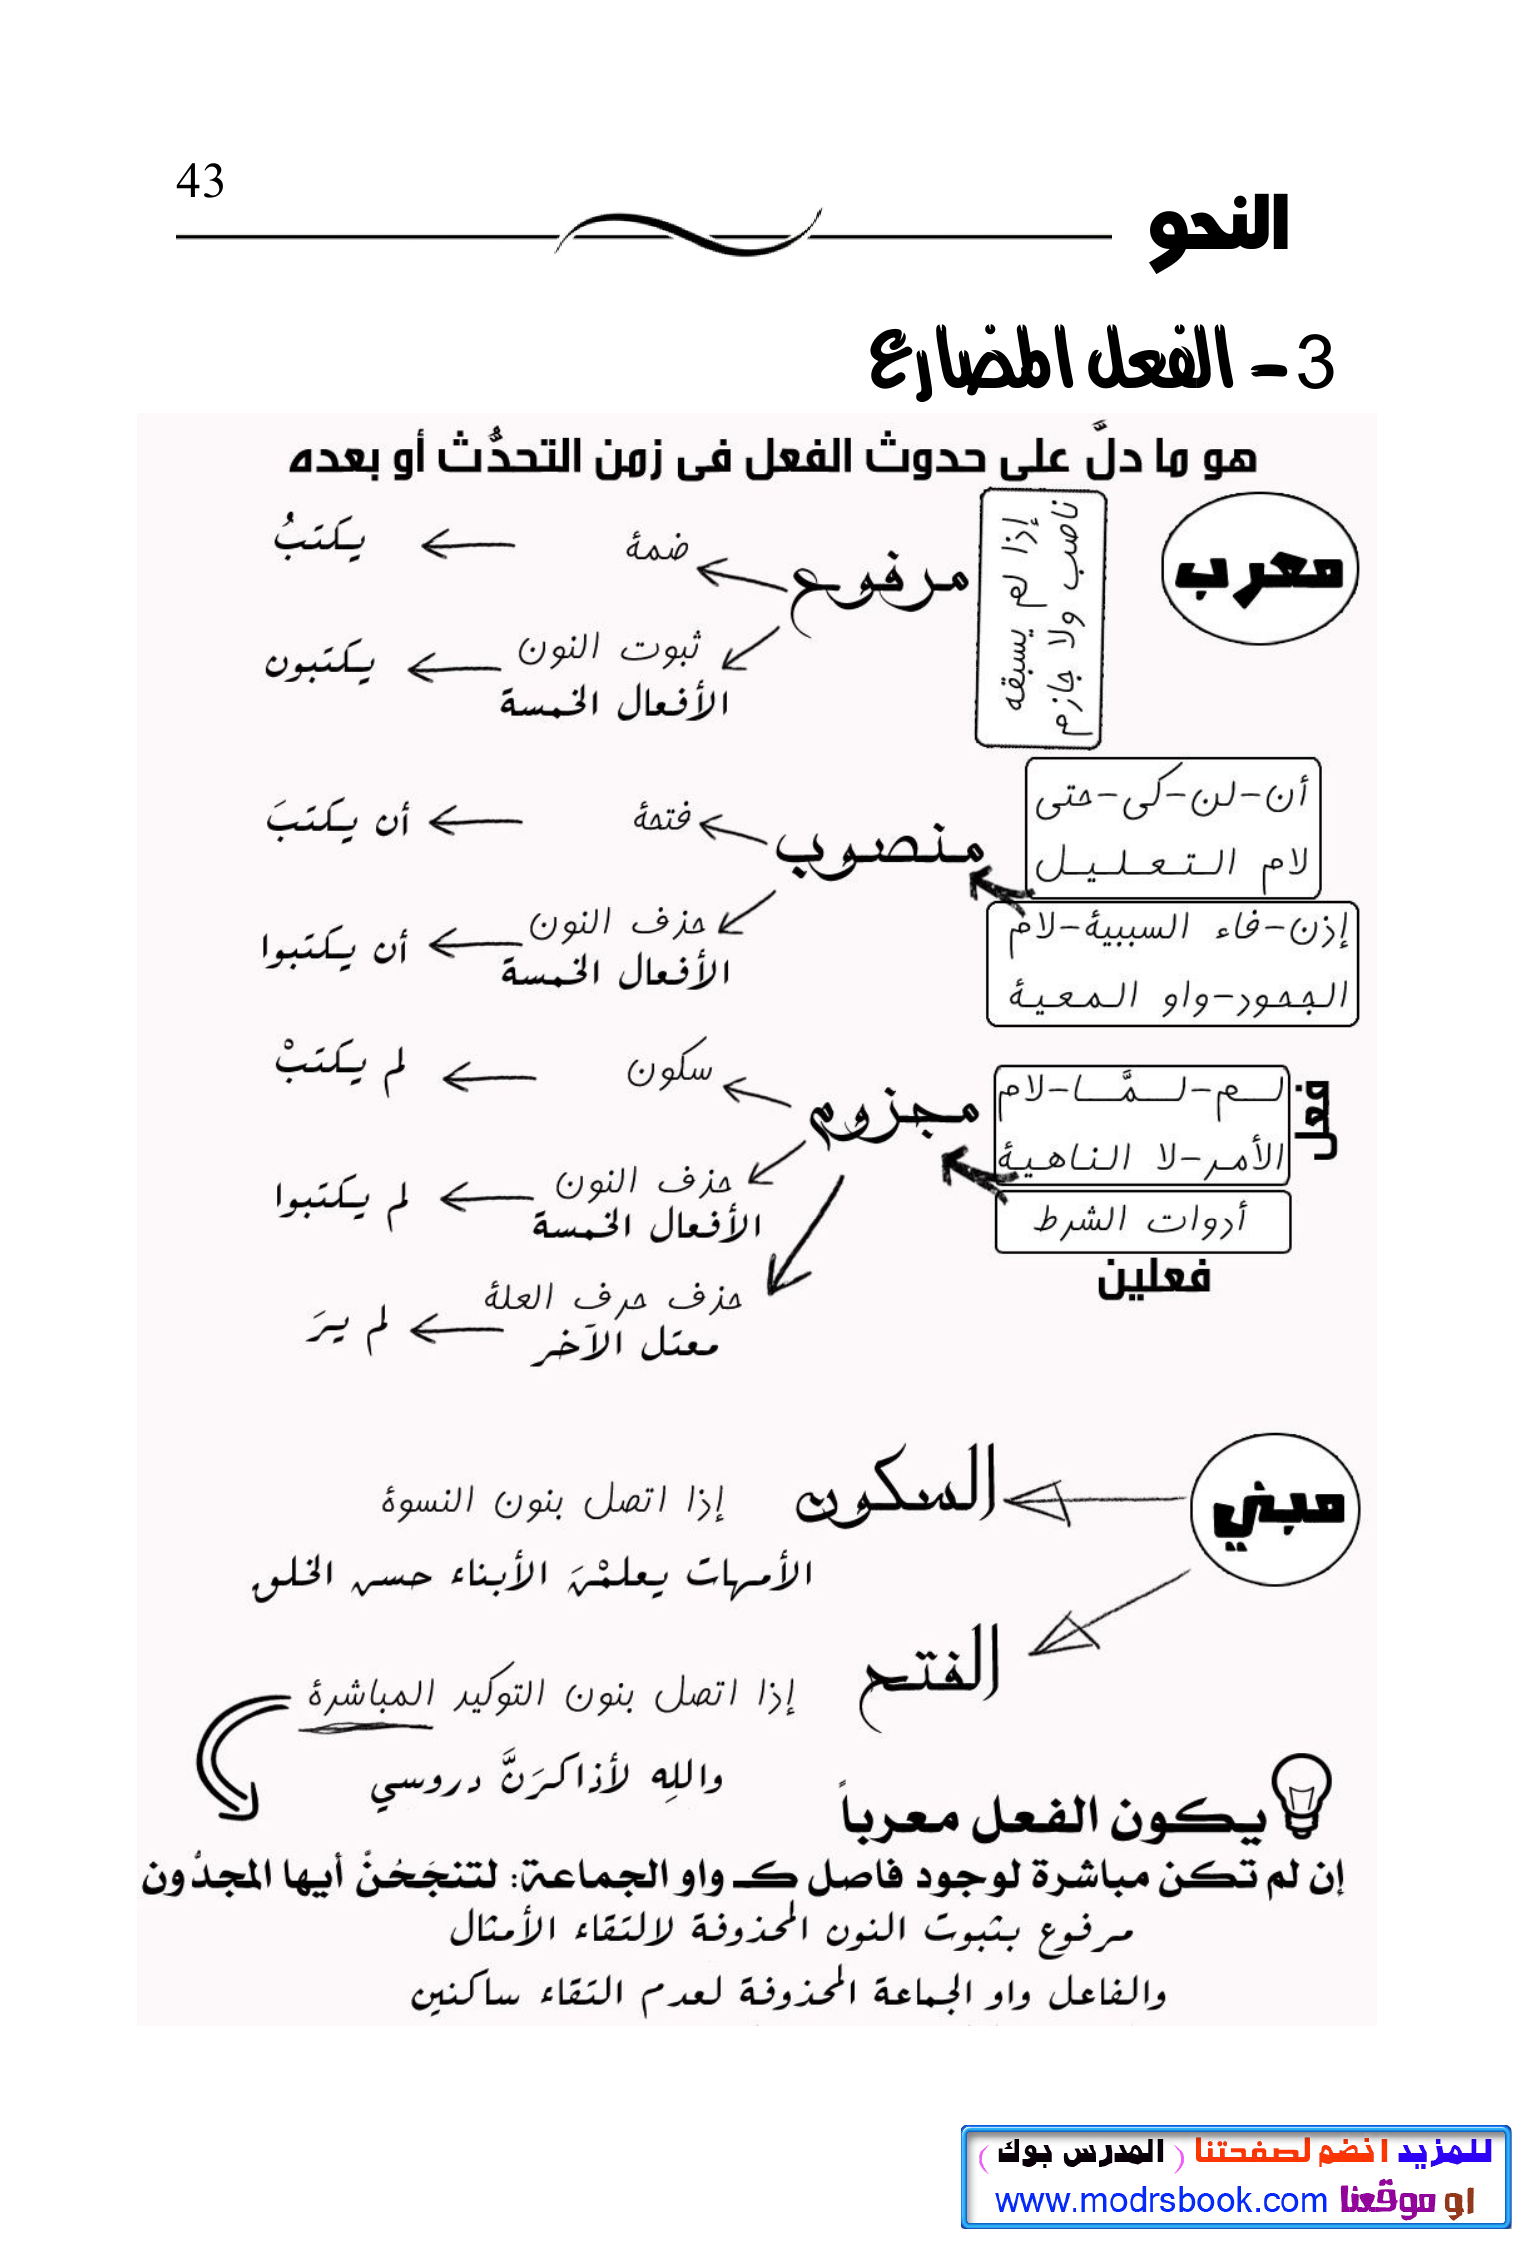 43
النحو
3 - الفعل المضارع
هو ما دلَّ على حدوث الفعل فى زمن التحدُّث أو بعده
معرب
إذا لم يسبقه
ناصب ولا جازم
مرفوع
ضمة
يكتبُ
ثبوت النون
الأفعال الخمسة
يكتبون
أن-لن-كى-حتى
لام التعليل
إذن-فاء السببية-لام
الجحود-واو المعية
منصوب
فتحة
أن يكتبَ
حذف النون
الأفعال الخمسة
أن يكتبوا
فعل
لم-لمَّا-لام
الأمر-لا الناهية
أدوات الشرط
فعلين
مجزوم
سكون
لم يكتبْ
حذف النون
الأفعال الخمسة
لم يكتبوا
حذف حرف العلة
معتل الآخر
لم يرَ
مبني
السكون
إذا اتصل بنون النسوة
الأمهات يعلمْنَ الأبناء حسن الخلق
الفتح
إذا اتصل بنون التوكيد المباشرة
واللِه لأذاكرَنَّ دروسي
يكون الفعل معرباً
إن لم تكن مباشرة لوجود فاصل كـ واو الجماعة: لتنجَحُنَّ أيها المجدُّون
مرفوع بثبوت النون المحذوفة لالتقاء الأمثال
والفاعل واو الجماعة المحذوفة لعدم التقاء ساكنين
للمزيد انضم لصفحتنا ( المدرس بوك )
او موقعنا www.modrsbook.com